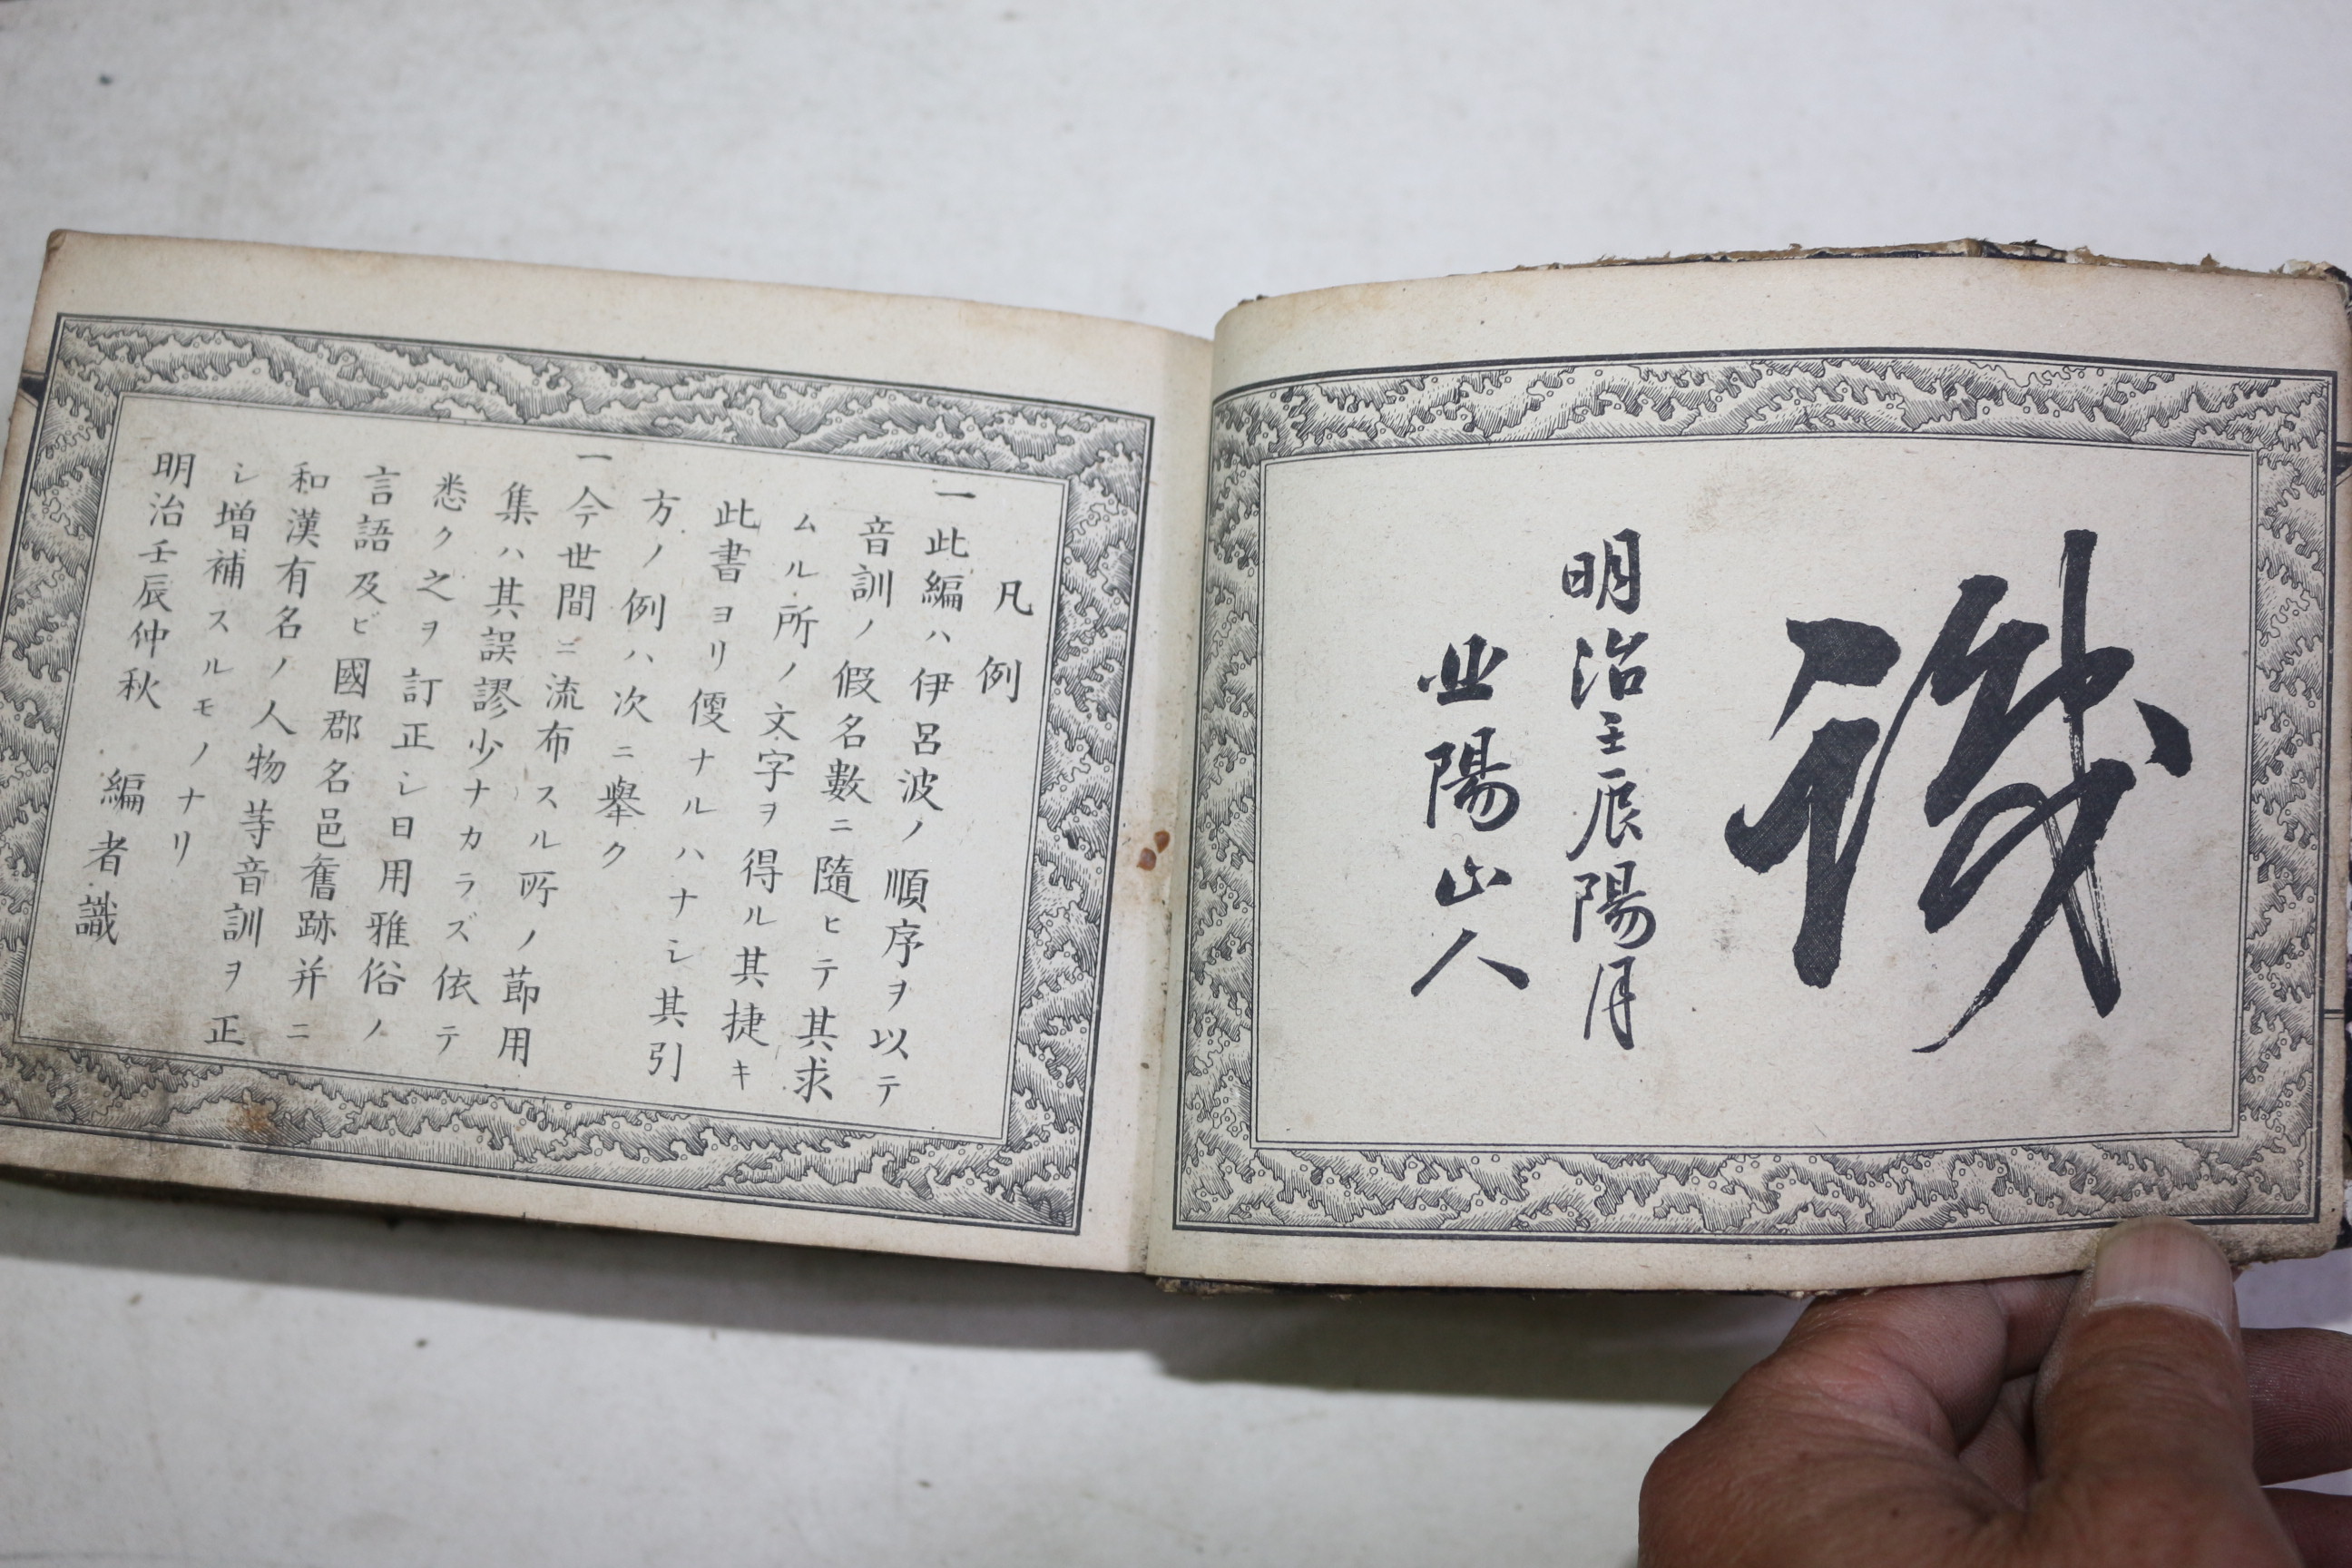 明治壬辰陽月
陽山人
凡例
一此編ハ伊呂波ノ順序ヲ以テ
音訓ノ假名數ニ隨ヒテ其求
ムル所ノ文字ヲ得ル其捷キ
此書ヨリ便ナルハナシ其引
方ノ例ハ次ニ擧ク
一今世間ニ流布スル所ノ節用
集ハ其誤謬少ナカラズ依テ
悉ク之ヲ訂正シ日用雅俗ノ
言語及ビ國郡名邑舊跡并ニ
和漢有名ノ人物等音訓ヲ正
シ増補スルモノナリ
明治壬辰仲秋 編者識